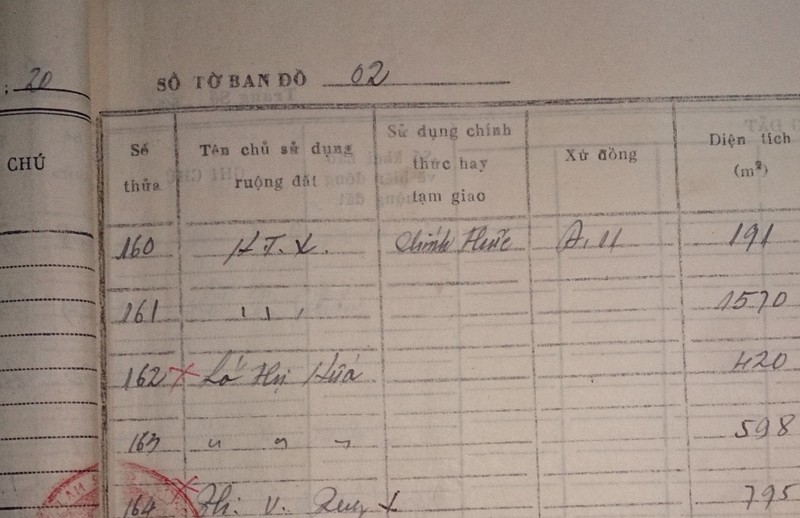 : 20
SỐ TỜ BẢN ĐỒ 02
CHÚ
Số thửa
Tên chủ sử dụng ruộng đất
Sử dụng chính thức hay tạm giao
Xứ đồng
Diện tích (m²)
160 H T. X. Chính Thức A, 11 191
161 " 1570
162 x Thị 420
163 " " " 598
164 x V. Quy x 795